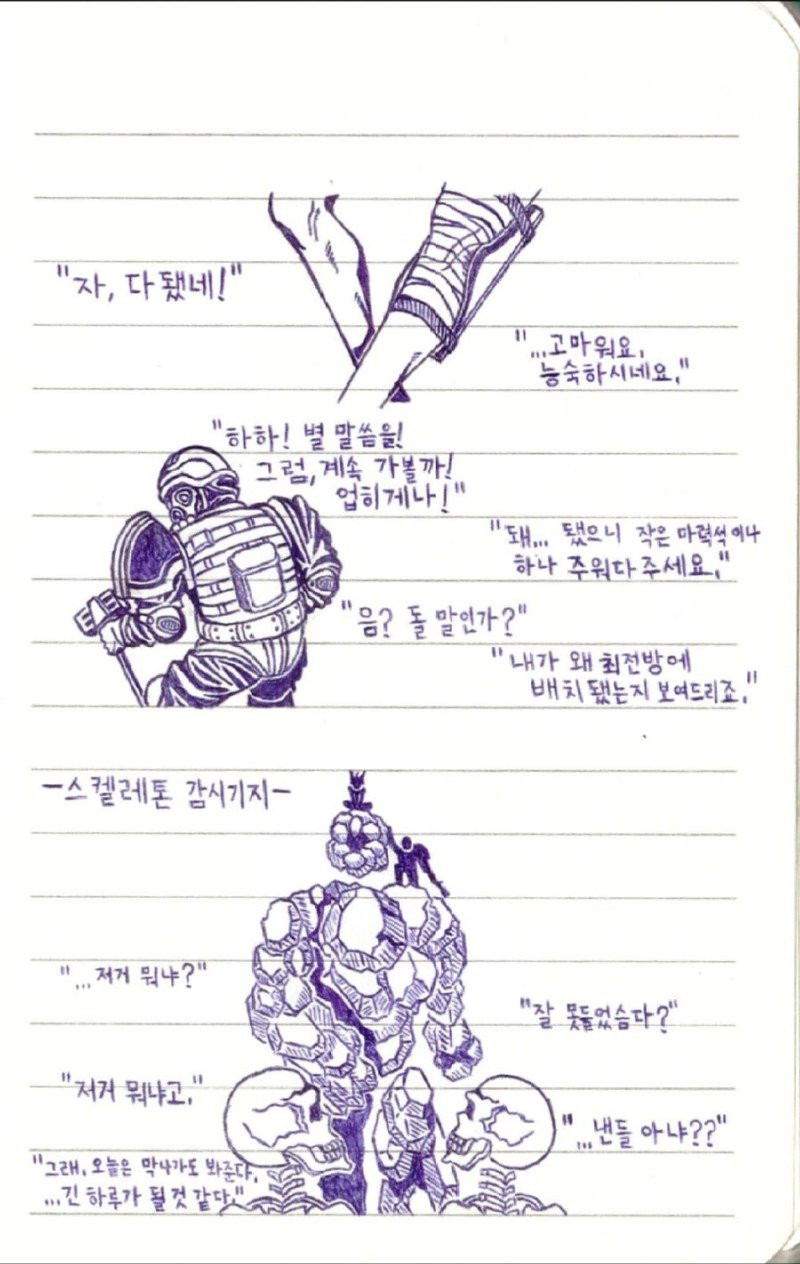 "자, 다 됐네!"
"...고마워요.
능숙하시네요."
"하하! 별 말씀을!
그럼, 계속 가볼까!
업히게나!"
"돼... 됐으니 작은 마력석이나
하나 주워다 주세요."
"음? 돌 말인가?"
"내가 왜 최전방에
배치됐는지 보여드리죠."
-스켈레톤 감시기지-
"...저거 뭐냐?"
"잘 못들었슴다?"
"저거 뭐냐고."
"...낸들 아냐??"
"그래, 오늘은 막나가도 봐준다.
...긴 하루가 될 것 같다."